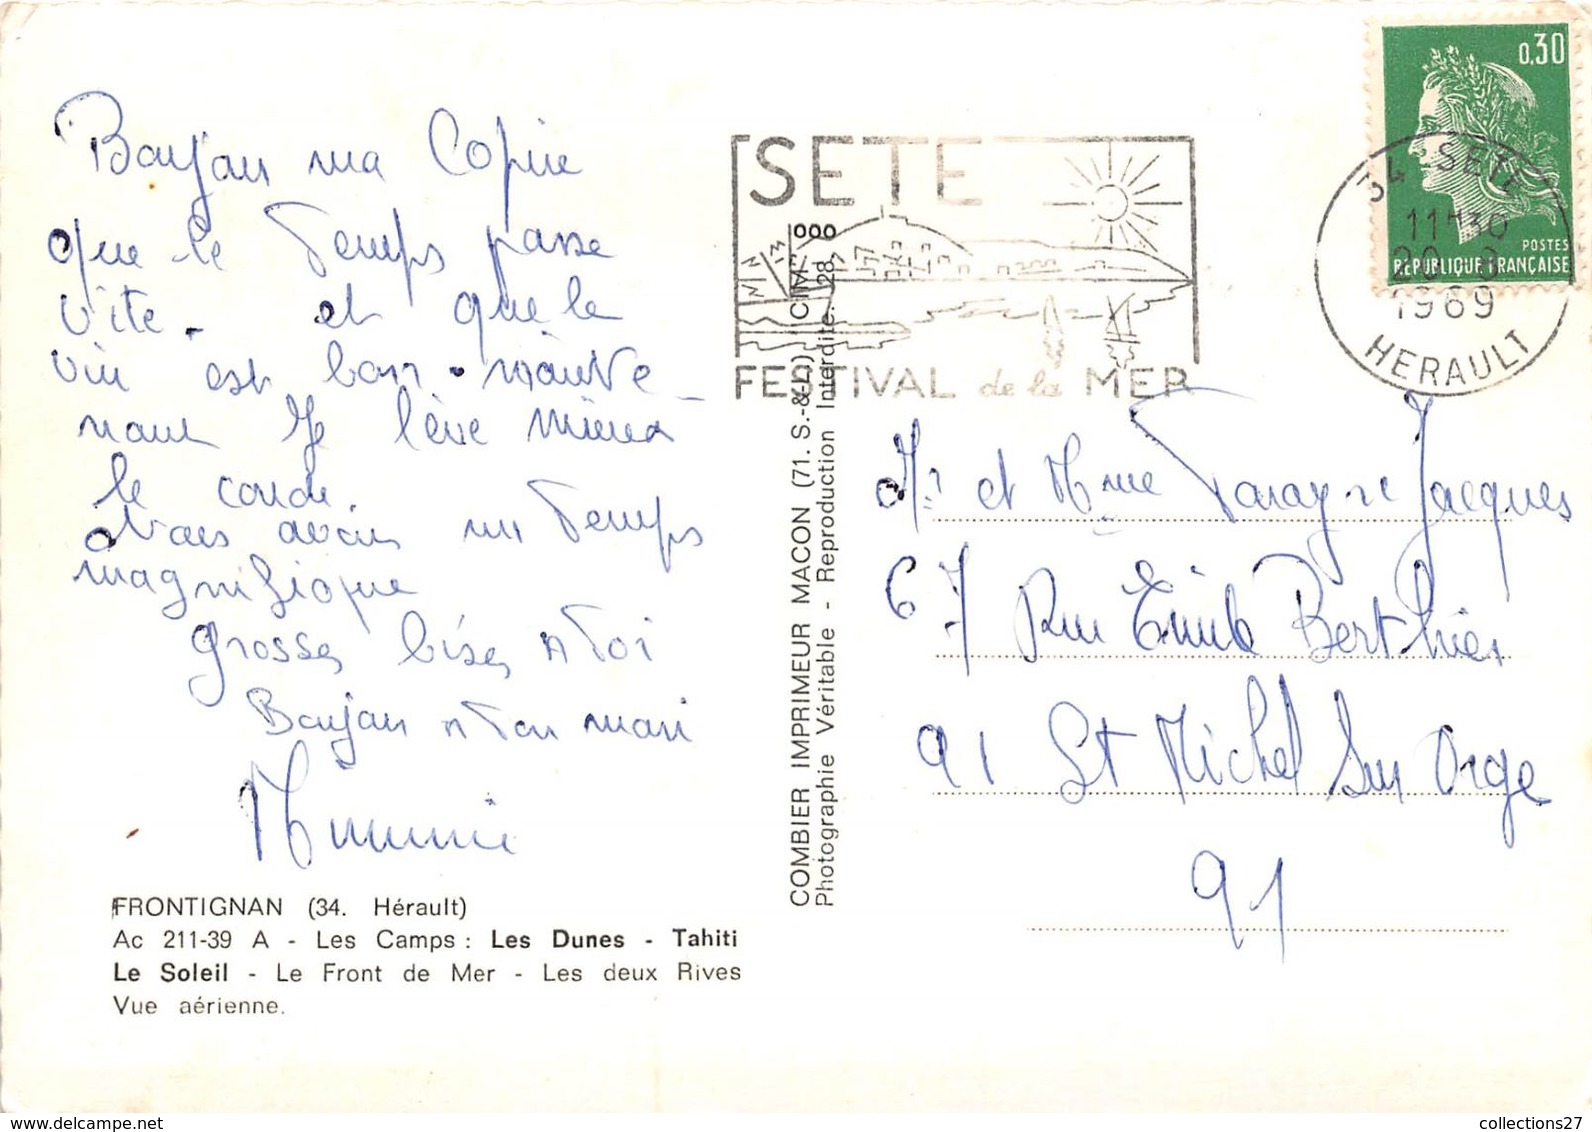 Boujou ma Copine
que le Temps passe
vite. et que le
vin est bon. mainte
nant Je lève mieux
le coude.
Nous avons un Temps
magnifique
Grosses bises A Toi
Boujou A Ton mari
Mimmi
FRONTIGNAN (34. Hérault)
Ac 211-39 A - Les Camps : Les Dunes - Tahiti
Le Soleil - Le Front de Mer - Les deux Rives
Vue aérienne.
COMBIER IMPRIMEUR MACON (71. S.-&-L.) CIM
Photographie Véritable - Reproduction Interdite. 28
SETE
000
FESTIVAL de la MER
0,30
POSTES
REPUBLIQUE FRANÇAISE
34 SETE
11H30
20 - 8
1969
HERAULT
Mr et Mme Jacques
67 Rue Emile Berthier
91 St Michel Sur Orge
91
collections27